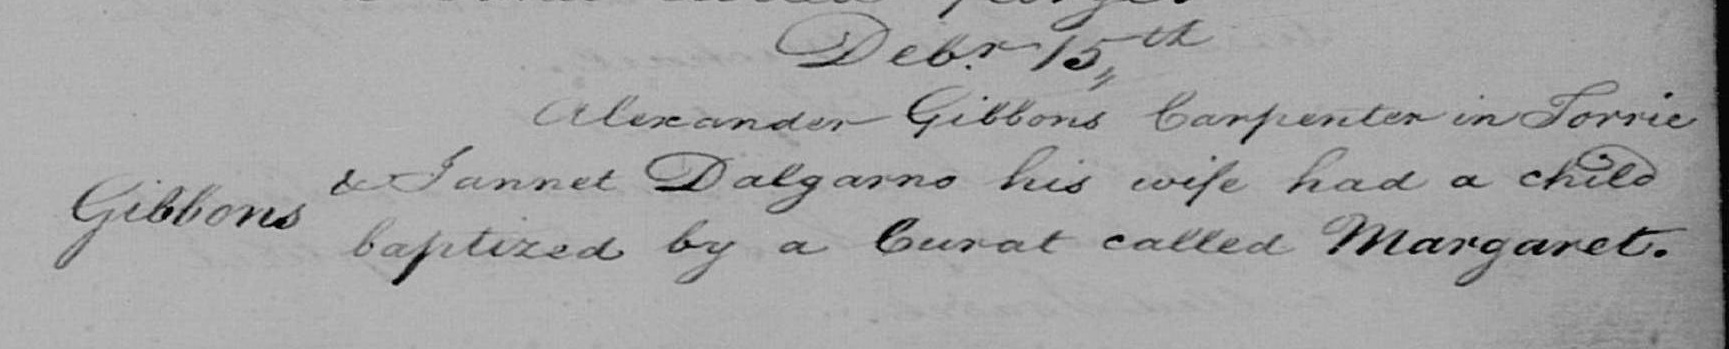 Debr. 15th
Alexander Gibbons Carpenter in Torrie
Gibbons & Jannet Dalgarno his wife had a child
baptized by a Curat called Margaret.